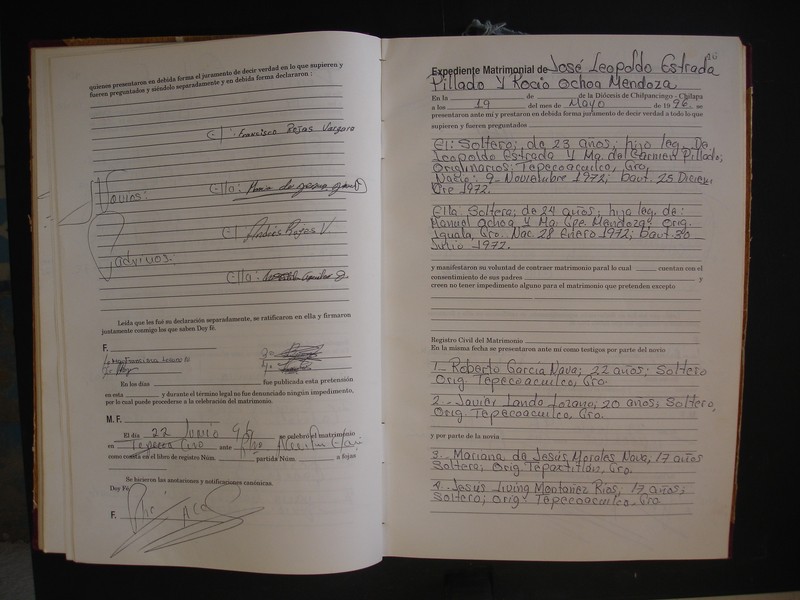 quienes presentaron en debida forma el juramento de decir verdad en lo que supieren y
fueren preguntados y siéndolo separadamente y en debida forma declararon :
El: Francisco Rojas Vargara
Novios:
Ella: Maria de Jesus
El: Andrés Rojas V.
Padrinos:
Ella: Aguilar
Leída que les fué su declaración separadamente, se ratificaron en ella y firmaron
justamente conmigo los que saben Doy fé.
F.
En los días fue publicada esta pretensión
en esta y durante el término legal no fue denunciado ningún impedimento,
por lo cual puede procederse a la celebración del matrimonio.
M. F.
El día 22 Junio 96 se celebró el matrimonio
en Tepecoa Gro ante
como consta en el libro de registro Núm. partida Núm. a fojas
Se hicieron las anotaciones y notificaciones canónicas.
Doy Fé
F.
16
Expediente Matrimonial de José Leopoldo Estrada
Pillado Y Rocio Ochoa Mendoza
En la de de la Diócesis de Chilpancingo - Chilapa
a los 19 del mes de Mayo de 1996. se
presentaron ante mí y prestaron en debida forma juramento de decir verdad a todo lo que
supieren y fueren preguntados
El: Soltero; de 23 años, hijo leg. De
Leopoldo Estrada Y Ma. del Carmen Pillado;
Originarios; Tepecoacuilco, Gro,
Nacio: 9- Noviembre 1972; baut. 25 Diciem
bre 1972.
Ella Soltera; de 24 años; hija leg. de:
Manuel Ochoa Y Ma. Gpe. Mendoza; orig.
Iguala, Gro. Nac. 28 Enero 1972; baut 30
Junio 1972.
y manifestaron su voluntad de contraer matrimonio paral lo cual cuentan con el
consentimiento de sus padres y
creen no tener impedimento alguno para el matrimonio que pretenden excepto
Registro Civil del Matrimonio
En la misma fecha se presentaron ante mí como testigos por parte del novio
1- Roberto Garcia Nava; 22 años; Soltero
Orig. Tepecoacuilco, Gro.
2- Javier Landa Lozano; 20 años; Soltero,
Orig. Tepecoacuilco, Gro.
y por parte de la novia
3. Mariana de Jesús Morales Nava, 17 años
Soltera; Orig Gro.
4- Jesus Living Montañez Rios; 17 años;
Soltero; orig. Tepecoacuilco, Gro